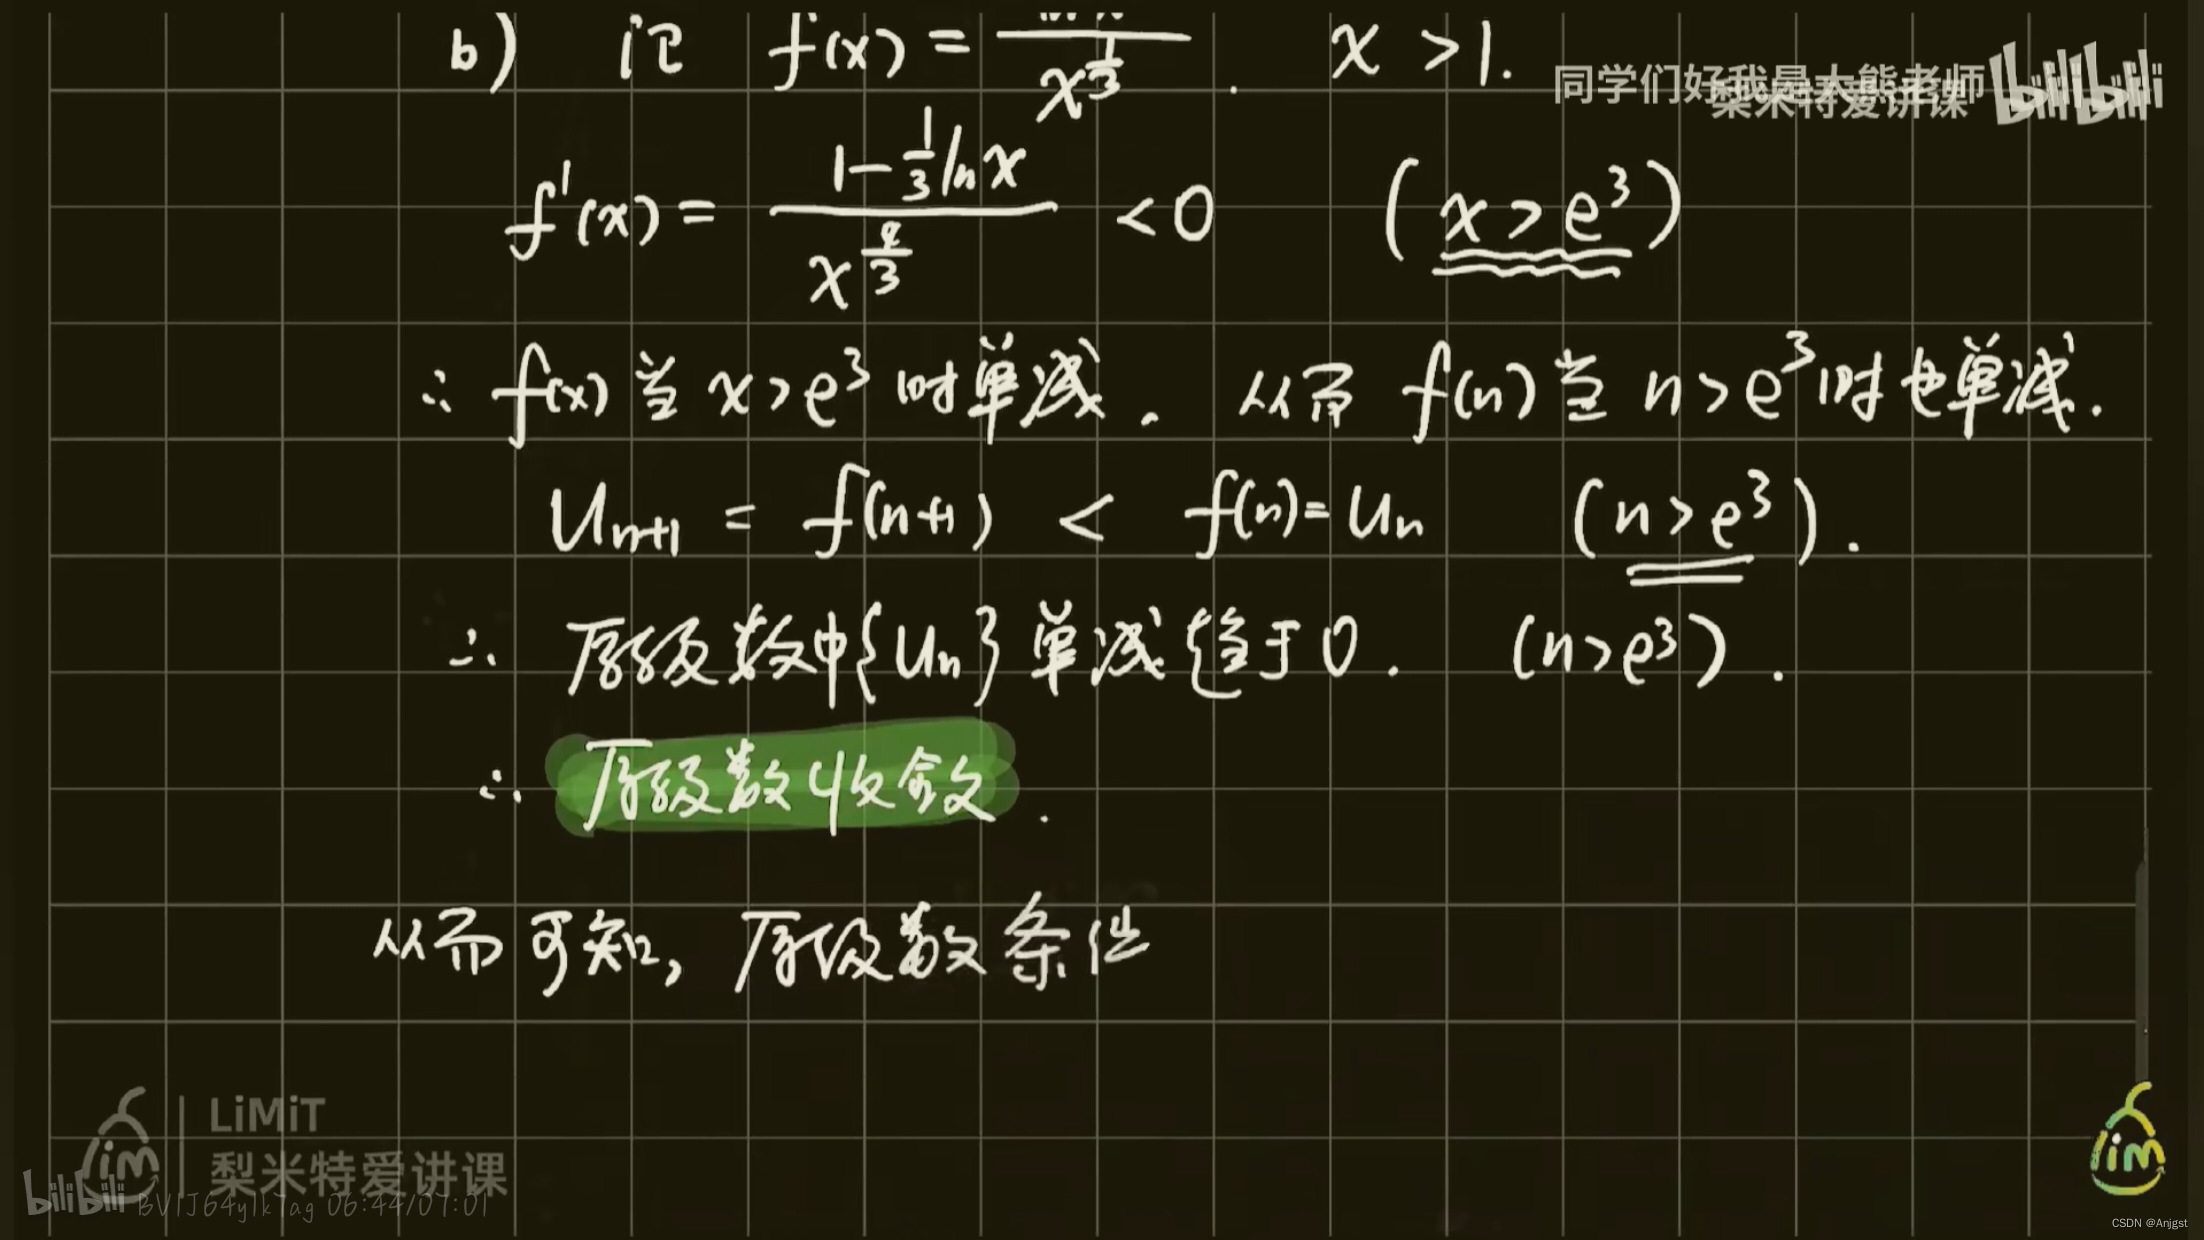 b) 记 f(x) = \frac{ln x}{x^{\frac{1}{3}}}. x > 1.
同学们好我是大熊老师
梨米特爱讲课
bilibili
f'(x) = \frac{1-\frac{1}{3}ln x}{x^{\frac{4}{3}}} < 0 (x > e^3)
∴ f(x) 当 x > e^3 时单减. 从而 f(n) 当 n > e^3 时也单减.
U_{n+1} = f(n+1) < f(n) = U_n (n > e^3).
∴ 原级数中{U_n}单减趋于0. (n > e^3).
∴ 原级数收敛.
从而可知, 原级数条件
LiMiT
梨米特爱讲课
bilibili 06:44/07:01
lim
lim
CSDN @Anjgst